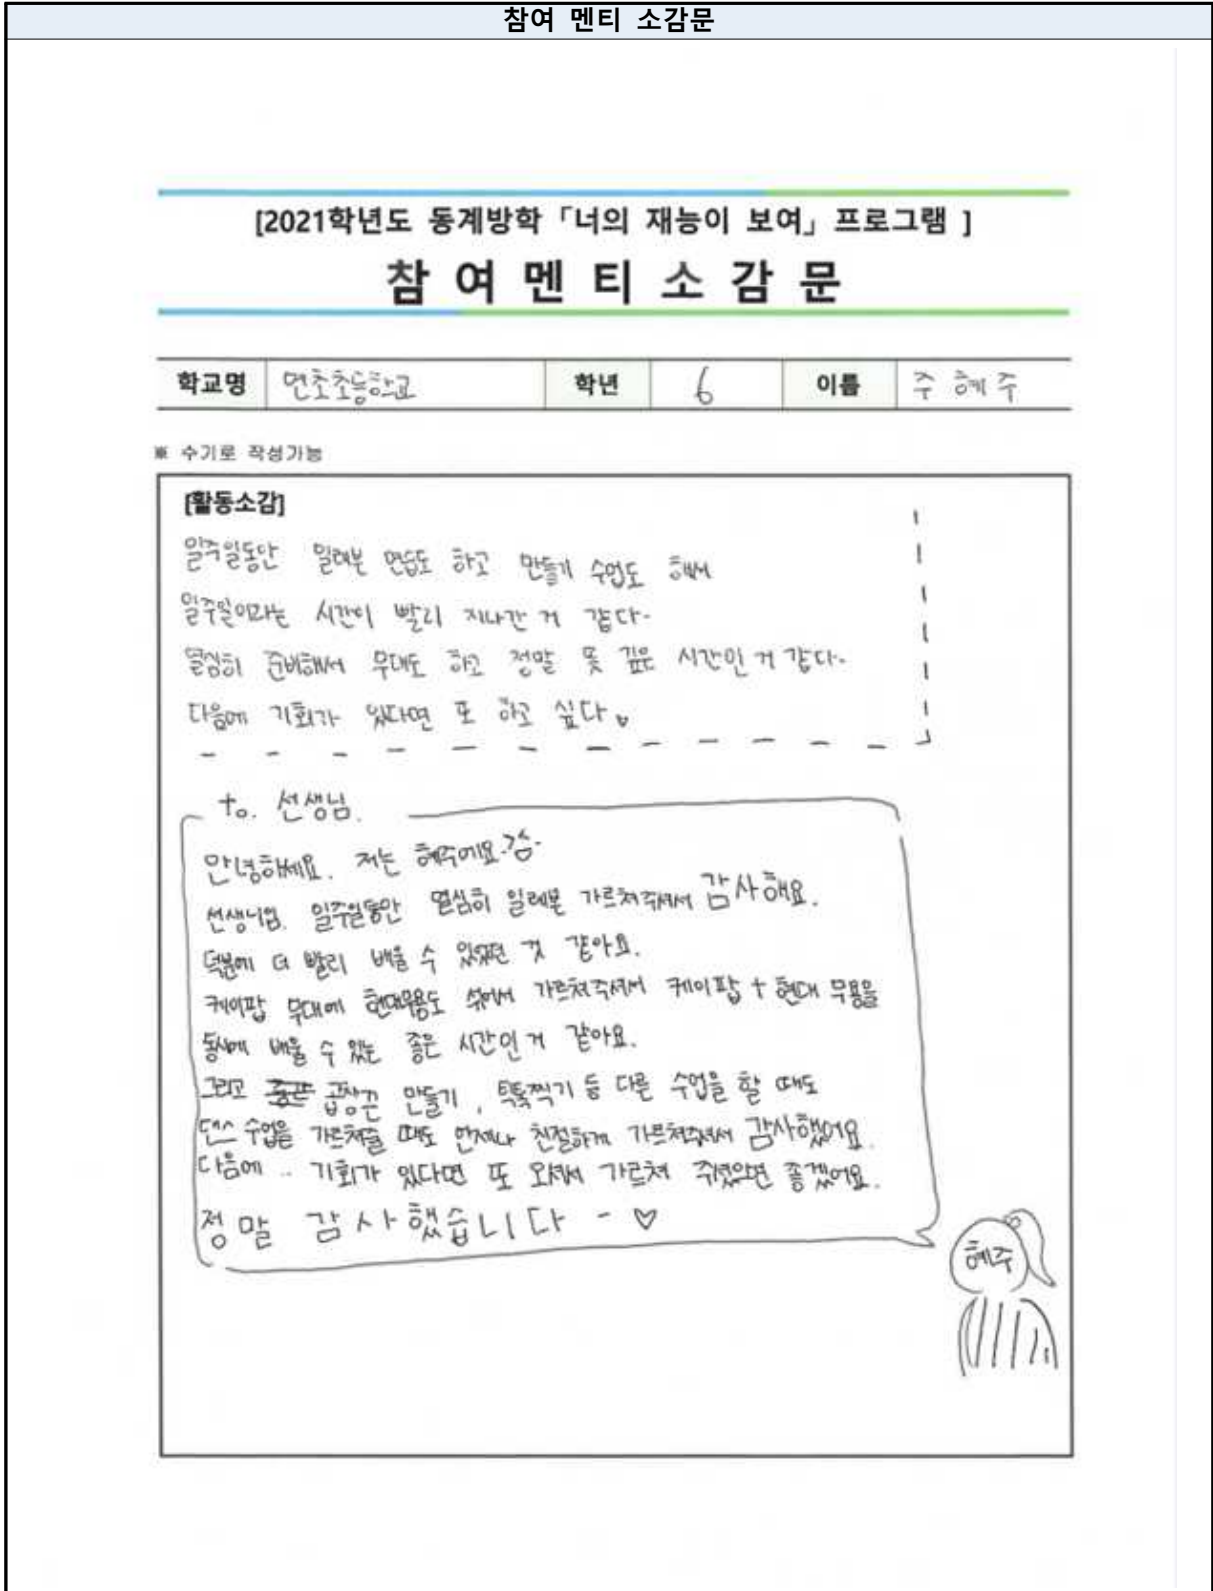 참여 멘티 소감문
[2021학년도 동계방학 「너의 재능이 보여」 프로그램 ]
참 여 멘 티 소 감 문
학교명 면초초등학교 학년 6 이름 주 혜 주
※ 수기로 작성가능
[활동소감]
일주일동안 일레븐 연습도 하고 만들기 수업도 해서
일주일이라는 시간이 빨리 지나간 거 같다.
열심히 준비해서 무대도 하고 정말 뜻 깊은 시간인 거 같다.
다음에 기회가 있다면 또 하고 싶다♥
to. 선생님.
안녕하세요. 저는 혜주에요
선생니임. 일주일동안 열심히 일레븐 가르쳐주셔서 감사해요.
덕분에 더 빨리 배울 수 있었던 것 같아요.
케이팝 무대에 현대무용도 섞어서 가르쳐주셔서 케이팝 + 현대 무용을
동시에 배울 수 있는 좋은 시간인 거 같아요.
그리고 곱창끈 만들기, 틱톡찍기 등 다른 수업을 할 때도
댄스 수업을 가르쳐줄 때도 언제나 친절하게 가르쳐주셔서 감사했어요.
다음에 .. 기회가 있다면 또 오셔서 가르쳐 주셨으면 좋겠어요.
정말 감사했습니다 - ♡
혜주